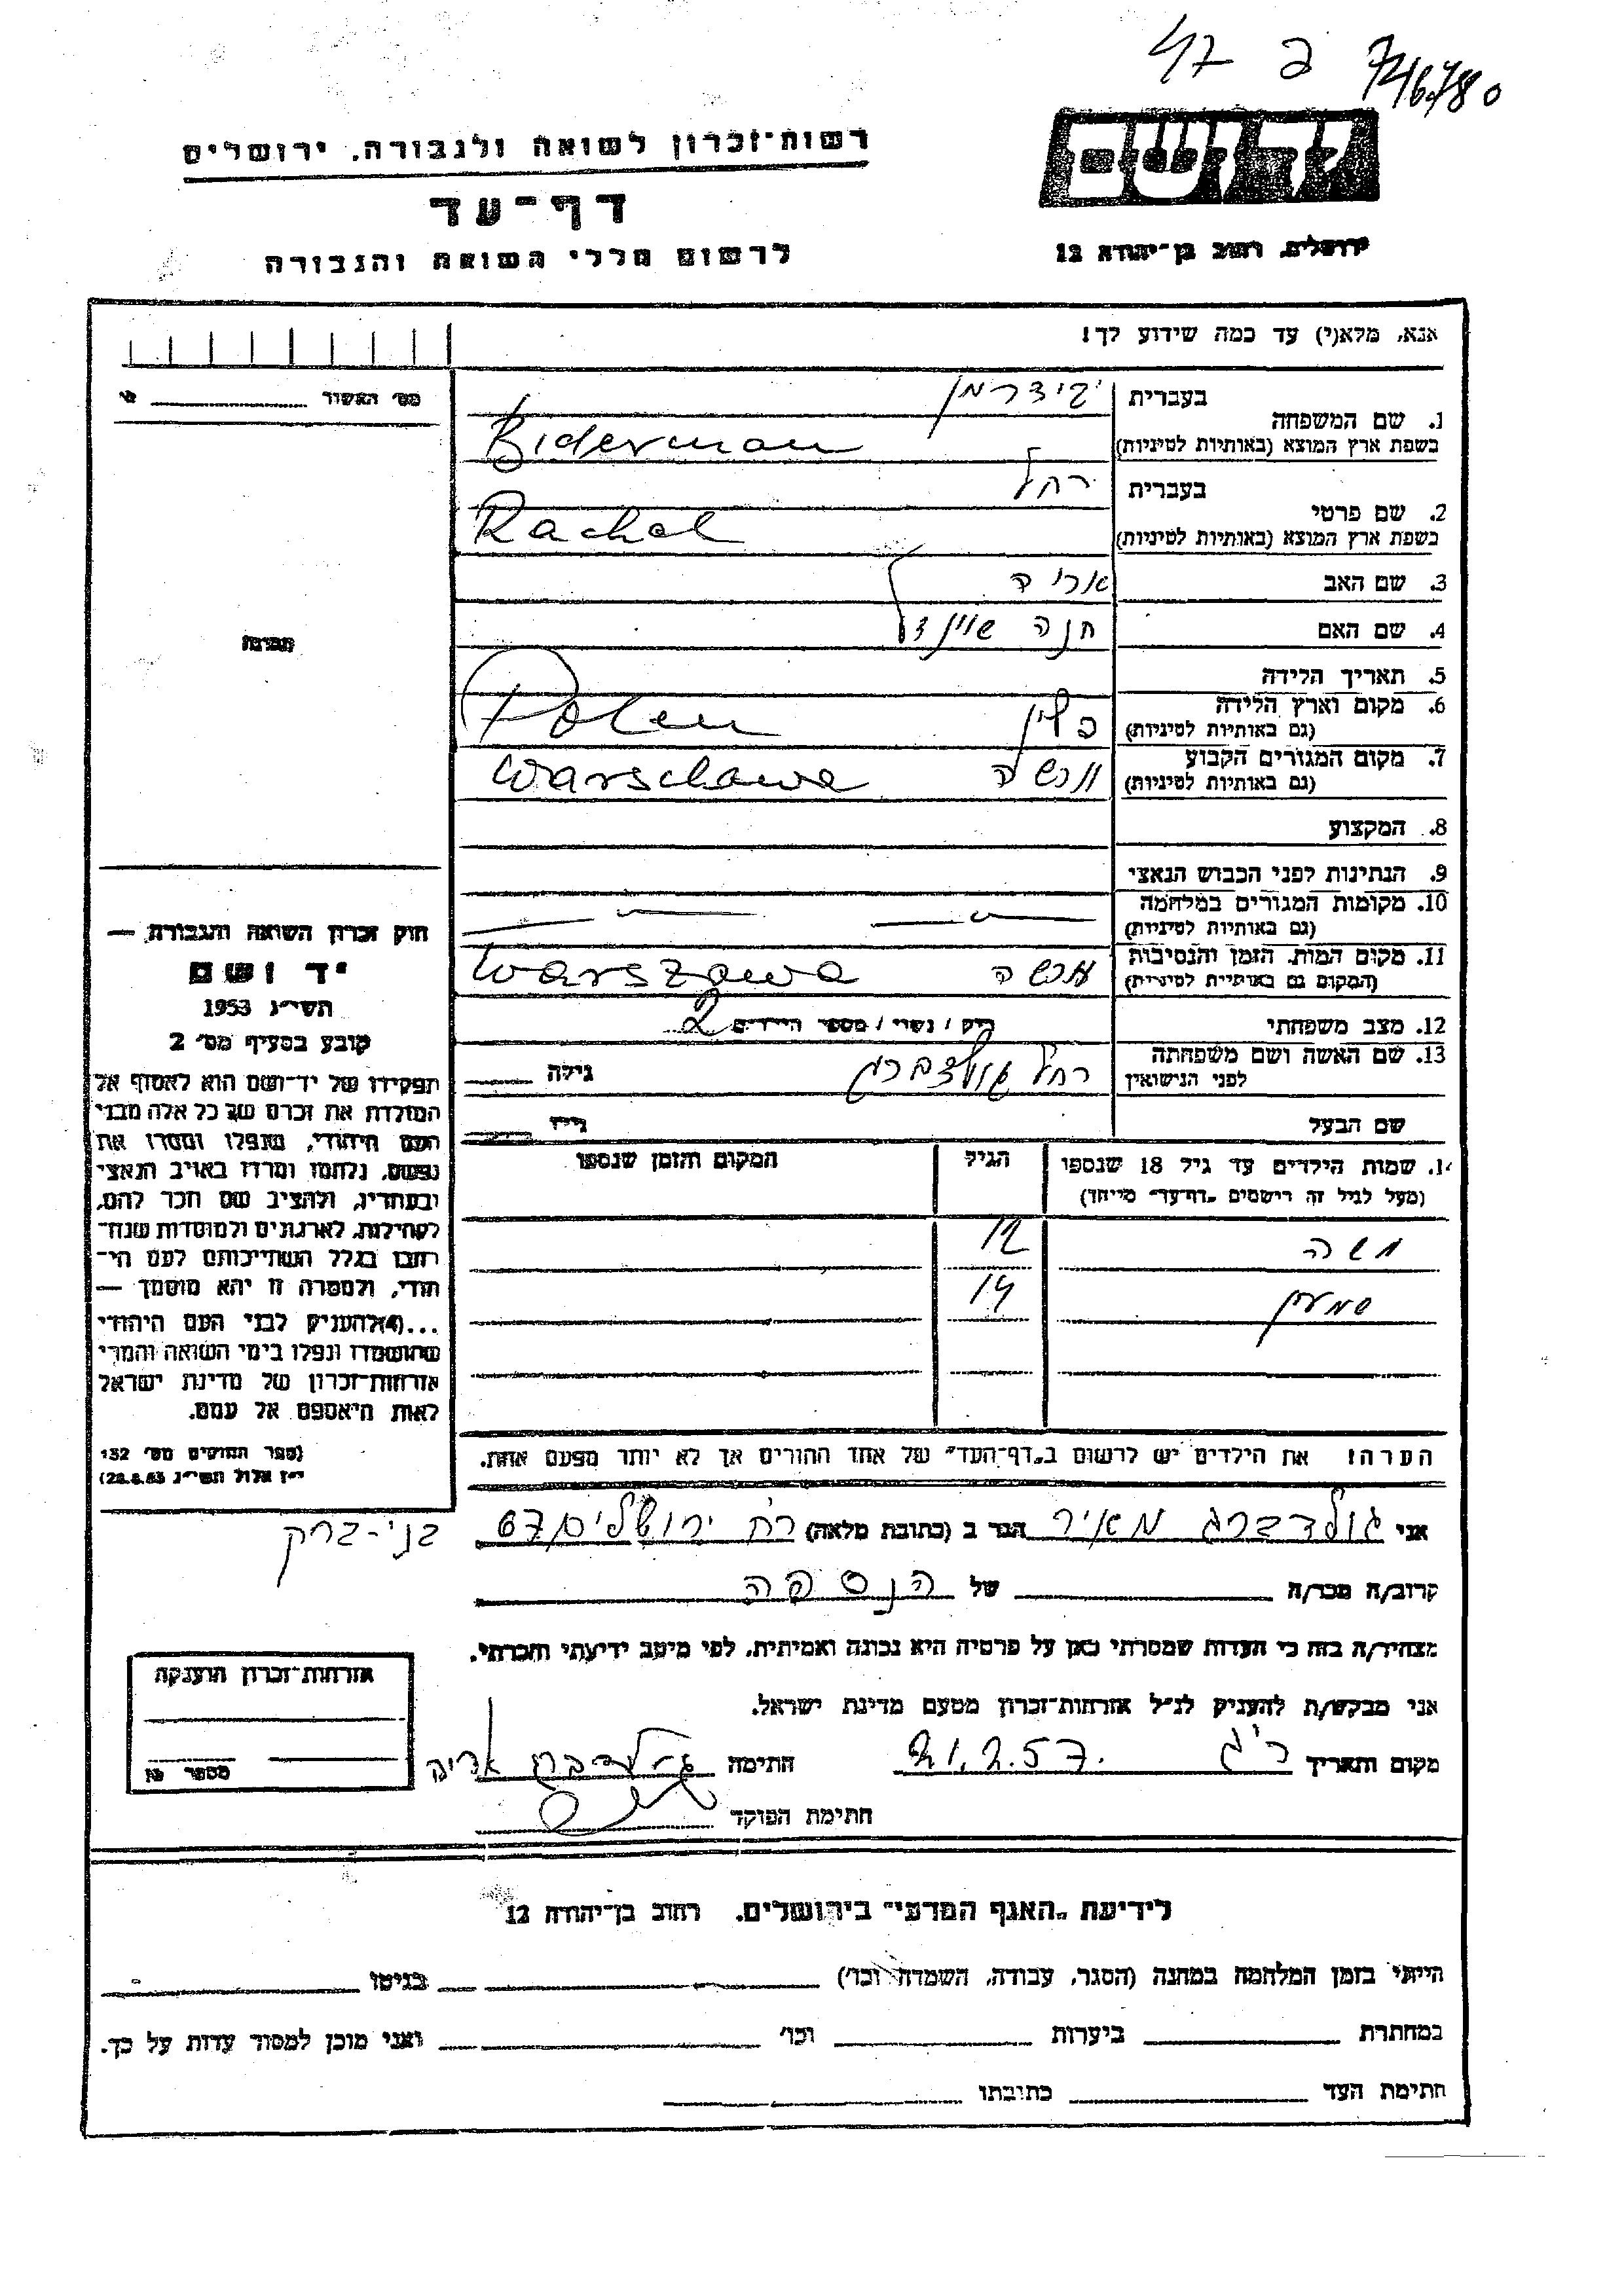 47 ב 746780
יד ושם
ירושלים, רחוב בן־יהודה 12
רשות־זכרון לשואה ולגבורה, ירושלים
דף־עד
לרשום חללי השואה והגבורה
אנא, מלא(י) עד כמה שידוע לך!
מס׳ האשור
1. שם המשפחה
בעברית
בידרמן
בשפת ארץ המוצא (באותיות לטיניות)
Biderman
2. שם פרטי
בעברית
רחל
בשפת ארץ המוצא (באותיות לטיניות)
Rachel
3. שם האב
אריה
4. שם האם
חנה שיינדל
תמונה
5. תאריך הלידה
6. מקום וארץ הלידה
(גם באותיות לטיניות)
פולין Polen
7. מקום המגורים הקבוע
(גם באותיות לטיניות)
ורשה Warschawa
8. המקצוע
9. הנתינות לפני הכבוש הנאצי
10. מקומות המגורים במלחמה
(גם באותיות לטיניות)
11. מקום המות, הזמן והנסיבות
(המקום גם באותיות לטיניות)
ורשה Warszawa
12. מצב משפחתי
רוק / נשוי / מספר הילדים 2
13. שם האשה ושם משפחתה
לפני הנישואין
רחל גולדברג
גילה
שם הבעל
גילו
14. שמות הילדים עד גיל 18 שנספו
(מעל לגיל זה רישמים „דף־עד״ מייחד)
הגיל
המקום והזמן שנספו
משה 12
שמעון 14
הערה! את הילדים יש לרשום ב„דף־העד״ של אחד ההורים אך לא יותר מפעם אחת.
חוק זכרון השואה והגבורה —
יד ושם
תשי״ג 1953
קובע בסעיף מס׳ 2
תפקידו של יד־ושם הוא לאסוף אל
המולדת את זכרם של כל אלה מבני
העם היהודי, שנפלו ומסרו את
נפשם, נלחמו ומרדו באויב הנאצי
ובעוזריו, ולהציב שם וזכר להם,
לקהילות, לארגונים ולמוסדות שנח־
רבו בגלל השתייכותם לעם הי־
הודי, ולמטרה זו יהא מוסמך —
...(4)להעניק לבני העם היהודי
שהושמדו ונפלו בימי השואה והמרי
אזרחות־זכרון של מדינת ישראל
לאות היאספם אל עמם.
(ספר החוקים מס׳ 132
י״ז אלול תשי״ג 28.8.53)
אני גולדברג מאיר הגר ב (כתובת מלאה) רח ירושלים 67 בני-ברק
קרוב/ה מכר/ה של הנספה
מצהיר/ה בזה כי העדות שמסרתי כאן על פרטיה היא נכונה ואמיתית, לפי מיטב ידיעתי והכרתי.
אני מבקש/ת להעניק לנ״ל אזרחות־זכרון מטעם מדינת ישראל.
מקום ותאריך 21.2.57. חתימה גולדברג
חתימת הפוקד
אזרחות־זכרון הוענקה
מספר
לידיעת „האגף המדעי״ בירושלים, רחוב בן־יהודה 12
הייתי בזמן המלחמה במחנה (הסגר, עבודה, השמדה וכו׳) בגיטו
במחתרת ביערות וכו׳ ואני מוכן למסור עדות על כך.
חתימת העד כתובתו